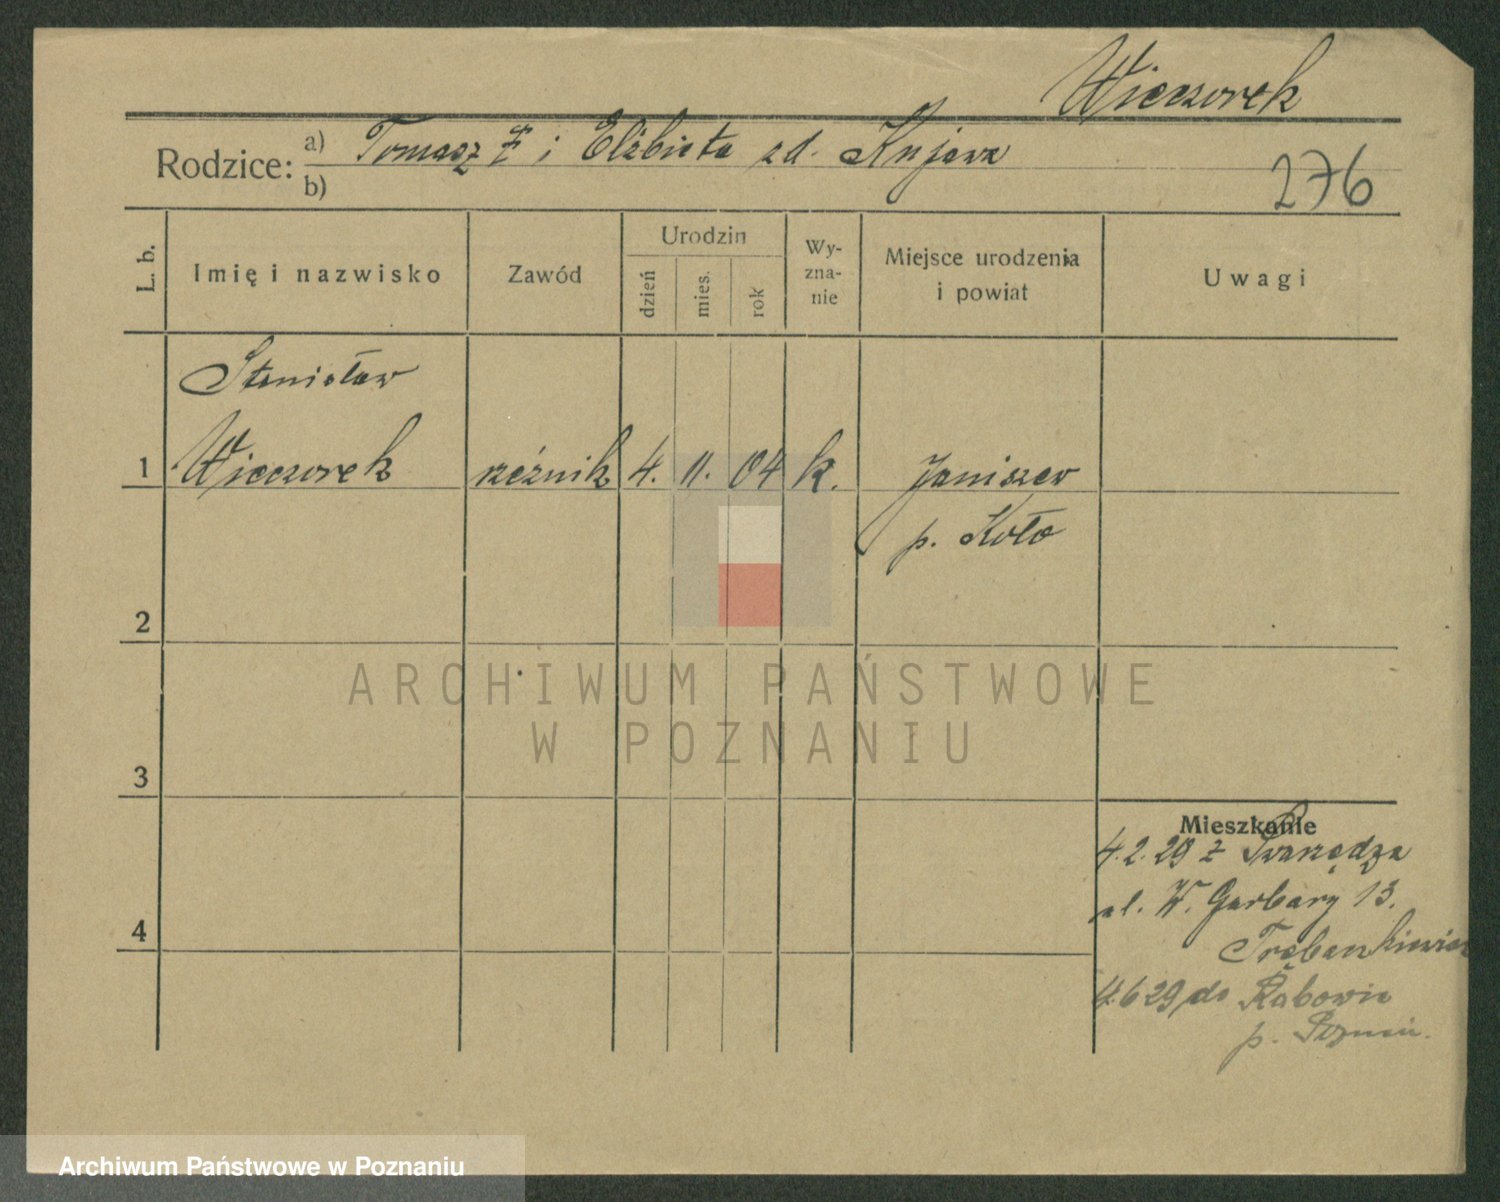 Wieczorek
Rodzice: a) Tomasz i Elżbieta zd. Kujawa
b)
276
L. b. Imię i nazwisko Zawód Urodzin dzień mies. rok Wyzna-nie Miejsce urodzenia i powiat Uwagi
Stanisław
1 Wieczorek rzeźnik 4. 11. 04 k. Janiszew
p. Koło
2
ARCHIWUM PAŃSTWOWE
W POZNANIU
3
Mieszkanie
4.2.29 z Swarzędza
ul. W. Garbary 13.
4
4.6 29 do Rabowic
p. Poznań.
Archiwum Państwowe w Poznaniu